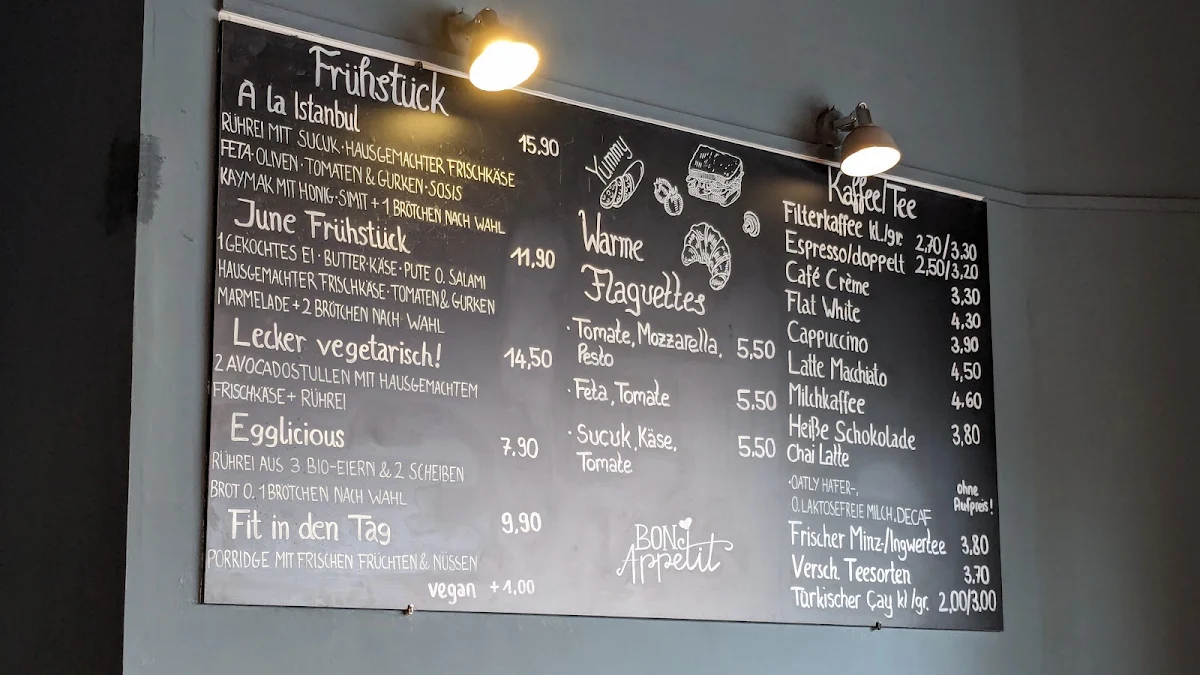 Frühstück
À la Istanbul 15,90
RÜHREI MIT SUCUK·HAUSGEMACHTER FRISCHKÄSE
FETA·OLIVEN·TOMATEN & GURKEN·SOSIS
KAYMAK MIT HONIG·SIMIT + 1 BRÖTCHEN NACH WAHL
June Frühstück 11,90
1 GEKOCHTES EI·BUTTER·KÄSE·PUTE O. SALAMI
HAUSGEMACHTER FRISCHKÄSE·TOMATEN & GURKEN
MARMELADE + 2 BRÖTCHEN NACH WAHL
Lecker vegetarisch! 14,50
2 AVOCADOSTULLEN MIT HAUSGEMACHTEM
FRISCHKÄSE + RÜHREI
Egglicious 7,90
RÜHREI AUS 3 BIO-EIERN & 2 SCHEIBEN
BROT O. 1 BRÖTCHEN NACH WAHL
Fit in den Tag 9,90
PORRIDGE MIT FRISCHEN FRÜCHTEN & NÜSSEN
vegan +1,00
Yummy
Warme
Flaguettes
·Tomate, Mozzarella, 5,50
Pesto
·Feta, Tomate 5,50
·Suçuk, Käse, 5,50
Tomate
BON
Appetit
Kaffee/Tee
Filterkaffee kl./gr. 2,70/3,30
Espresso/doppelt 2,50/3,20
Café Crème 3,30
Flat White 4,30
Cappuccino 3,90
Latte Macchiato 4,50
Milchkaffee 4,60
Heiße Schokolade 3,80
Chai Latte
·OATLY HAFER-, ohne
O. LAKTOSEFREIE MILCH, DECAF Aufpreis!
Frischer Minz-/Ingwertee 3,80
Versch. Teesorten 3,70
Türkischer Çay kl/gr. 2,00/3,00